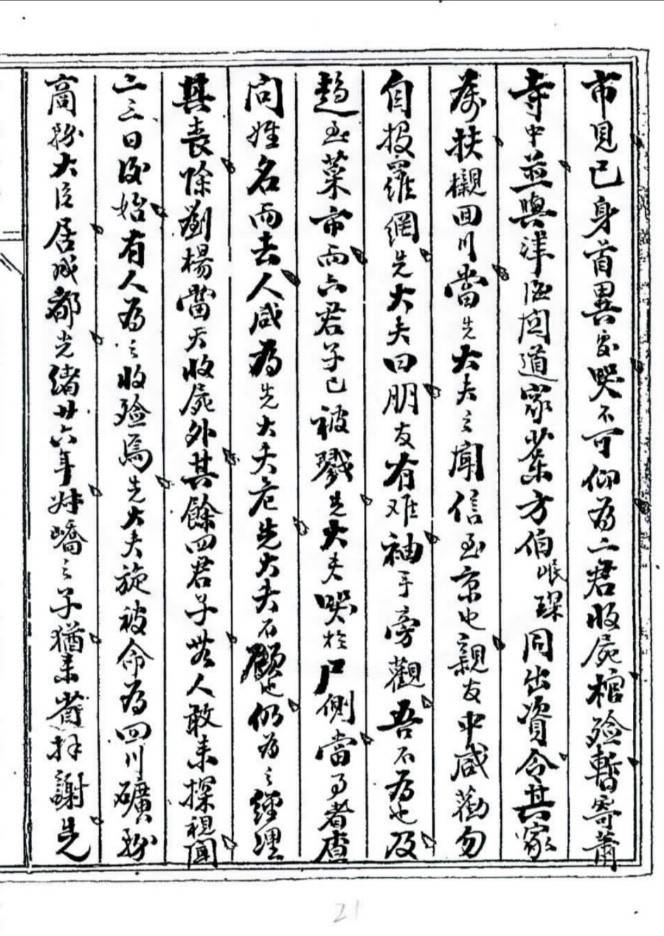 市見已身首異處哭不可仰為二君收屍棺殮暫寄蕭
寺中並與洋酒岡道家業方伯岷琛同出資令其家
屬扶櫬回川當先大夫之聞信至京也親友中咸勸勿
自投羅網先大夫曰朋友有难袖手旁觀吾不為也及
趋至菜市而六君子已被戮先大夫哭於尸側當事者查
问姓名而去人咸為先大夫危先大夫不顧也仍為之經理
其喪除劉楊當天收屍外其餘四君子無人敢來探視聞
二三日後始有人為之收殮焉先大夫旋被命為四川礦務
商務大臣居成都光緒廿六年嶠之子猶来省拜謝先
21